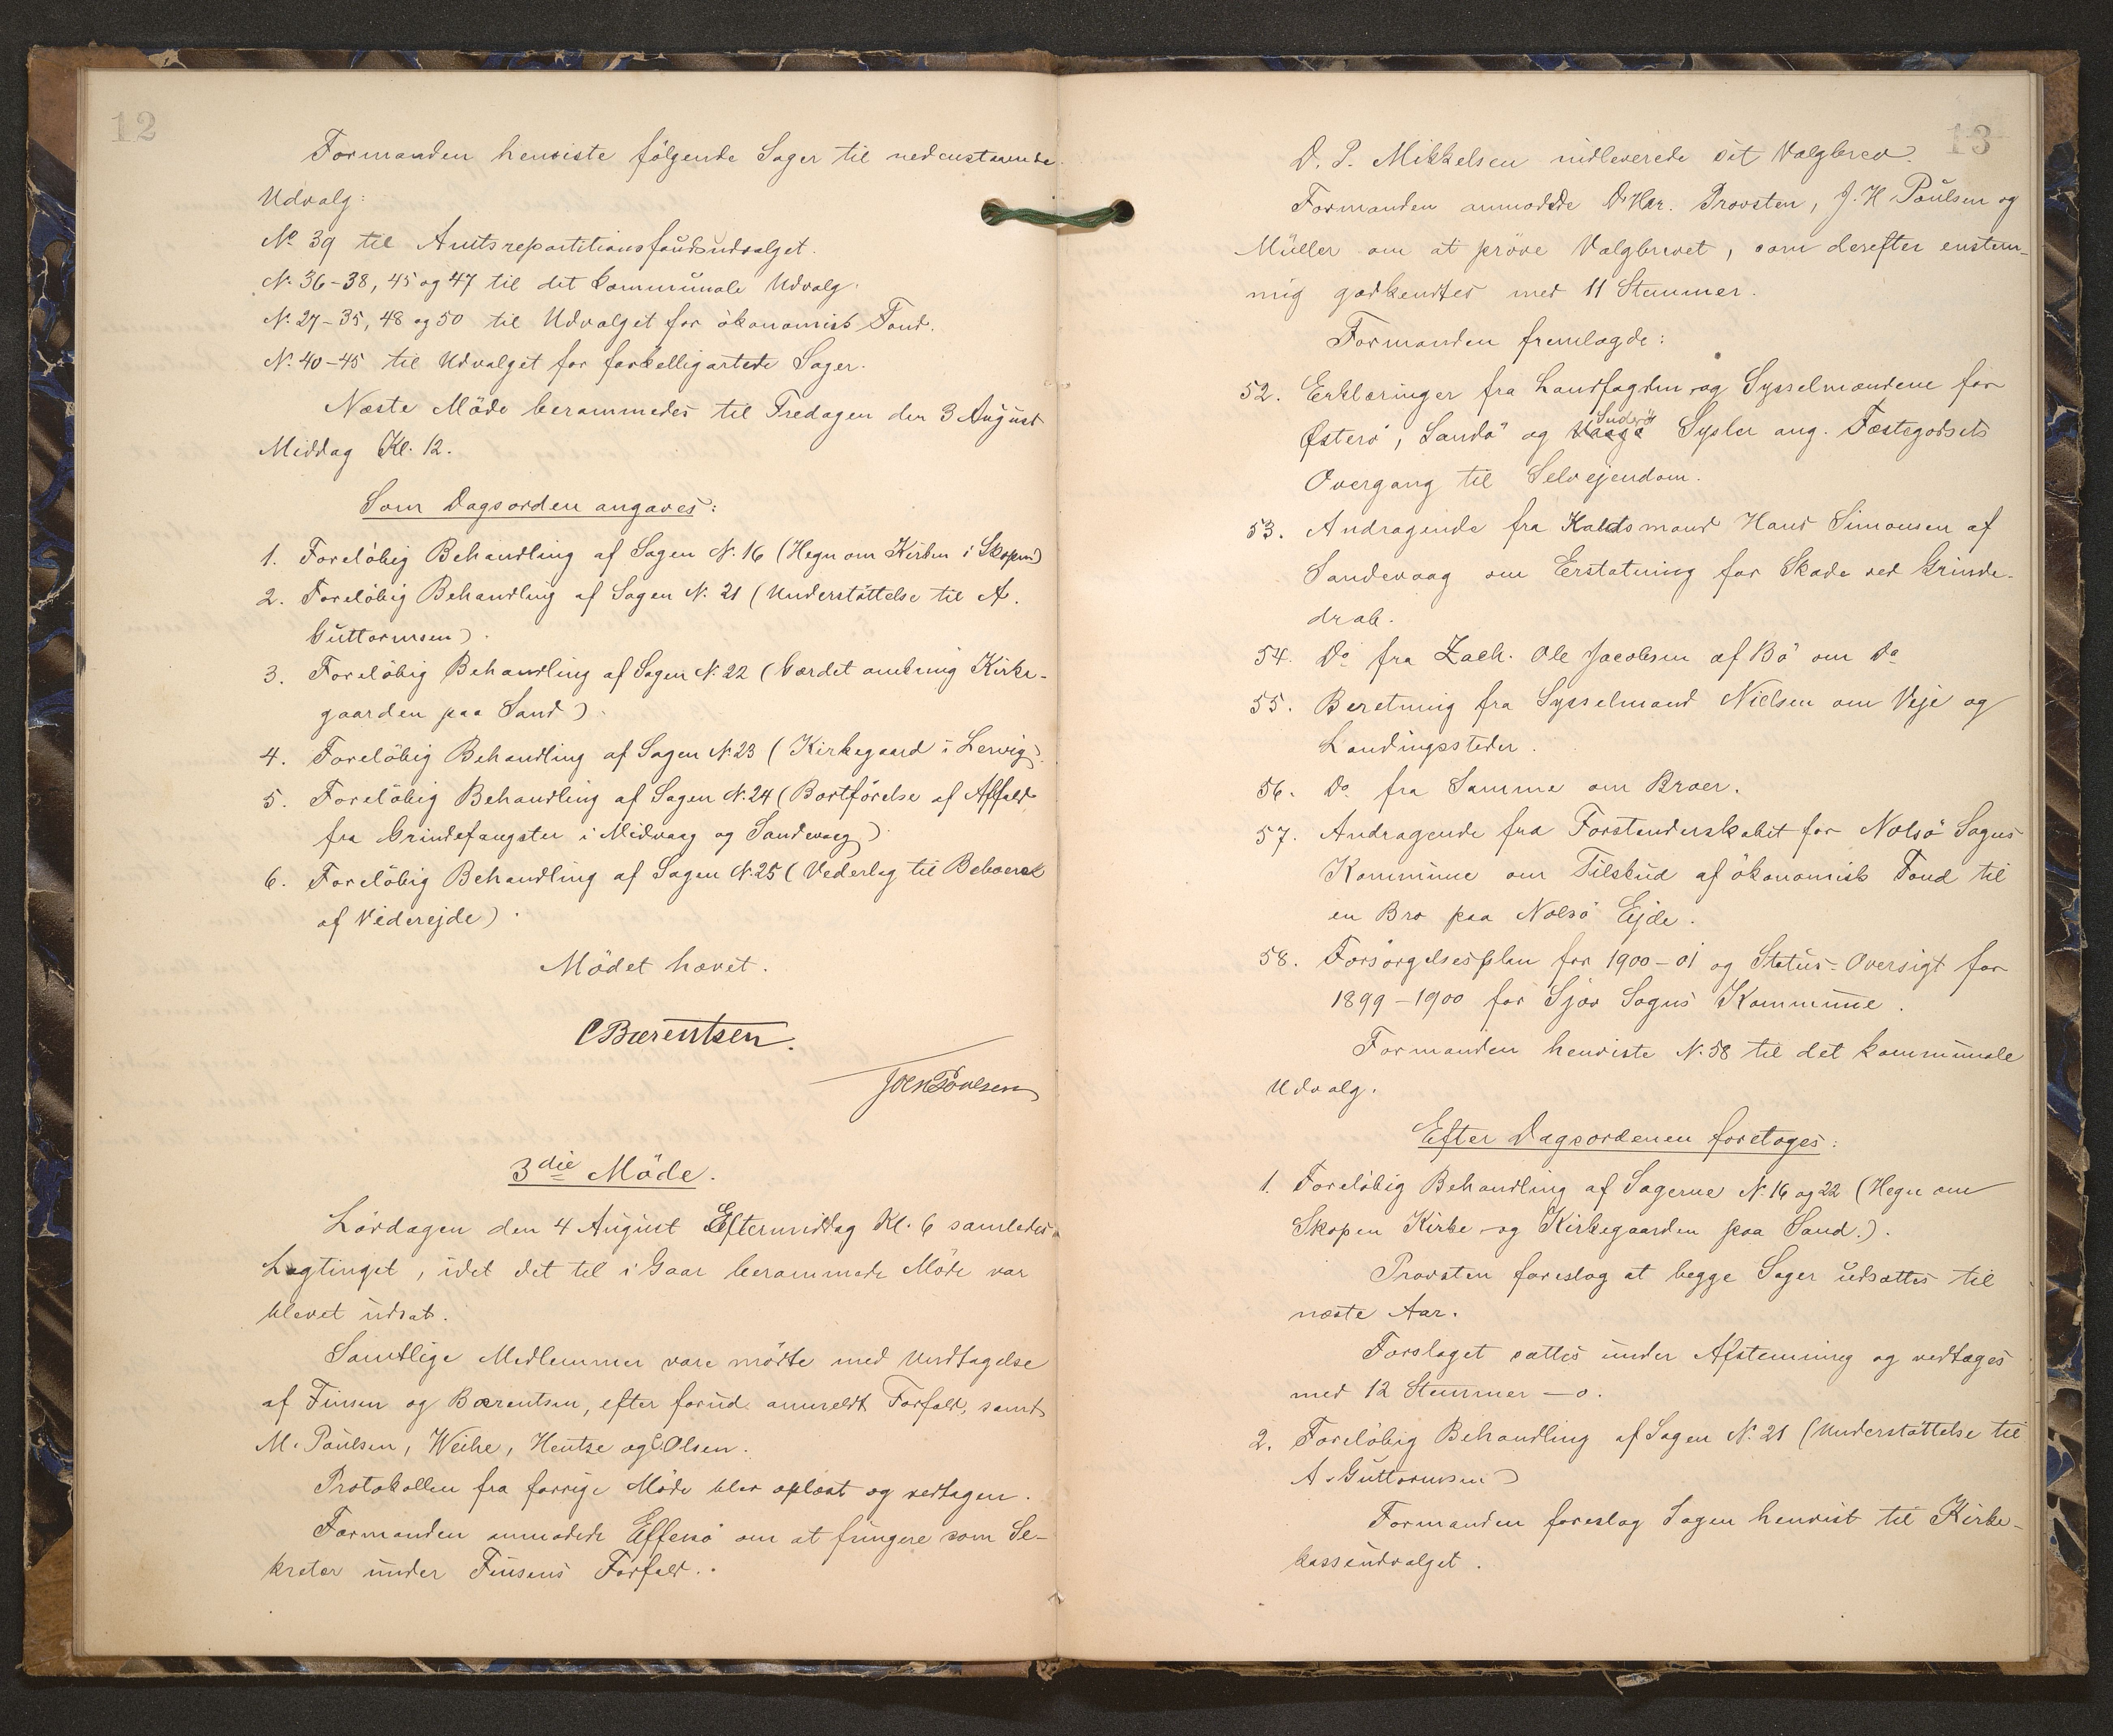 12
Formanden henviste følgende Sager til nedenstaaende
Udvalg:
No 39 til Amtsrepartitionsfondsudvalget.
N. 36-38, 45 og 47 til det kommunale Udvalg.
N. 27-35, 48 og 50 til Udvalget for økonomisk Fond.
N. 40-45 til Udvalget for forskelligartede Sager.
Næste Möde berammedes til Fredagen den 3 August
Middag Kl. 12.
Som Dagsorden angaves:
1. Foreløbig Behandling af Sagen N. 16 (Hegn om Kirken i Skopen)
2. Foreløbig Behandling af Sagen N. 21 (Understøttelse til A.
Guttormsen).
3. Foreløbig Behandling af Sagen N. 22 (Værdet omkring Kirke-
gaarden paa Sand).
4. Foreløbig Behandling af Sagen N. 23 (Kirkegaard i Lervig).
5. Foreløbig Behandling af Sagen N. 24 (Bortførelse af Affald
fra Grindefangster i Midvaag og Sandevaag).
6. Foreløbig Behandling af Sagen N. 25 (Vederlag til Beboerne
af Viderejde).
Mödet hævet.
C Bærentsen.
Joen Poulsen
3die Möde.
Lördagen den 4 August Eftermiddag Kl. 6 samledes
Lagtinget, idet det til i Gaar berammede Möde var
blevet udsat.
Samtlige Medlemmer vare mödte med Undtagelse
af Finsen og Bærentsen, efter forud anmeldt Forfald, samt
M. Poulsen, Weihe, Hentze og C. Olsen.
Protokollen fra forrige Möde blev oplæst og vedtagen.
Formanden anmodede Effersø om at fungere som Se-
kretær under Finsens Forfald.
13
D. P. Mikkelsen indleverede sit Valgbrev.
Formanden anmodede D'Hrr. Provsten, J. H Poulsen og
Müller om at pröve Valgbrevet, som derefter enstem-
mig godkendtes med 11 Stemmer.
Formanden fremlagde:
52. Erklæringer fra Landfogden og Sysselmændene for
Østerö, Sandö og Suderö Sysler ang. Fæstegodsets
Overgang til Selvejendom.
53. Andragende fra Hans Simonsen af
Sandevaag om Erstatning for Skade ved Grinde-
drab.
54. Do fra Zach. Ole Jacobsen af Bö om Do
55. Beretning fra Sysselmand Nielsen om Veje og
Landingssteder.
56. Do fra Samme om Broer.
57. Andragende fra Forstanderskabet for Nolsö Sogns
Kommune om Tilskud af økonomisk Fond til
en Bro paa Nolsö Ejde.
58. Forsørgelsesplan for 1900-01 og Status-Oversigt for
1899-1900 for Sjov Sogns Kommune.
Formanden henviste N. 58 til det kommunale
Udvalg.
Efter Dagsordenen foretoges:
1. Foreløbig Behandling af Sagerne N. 16 og 22 (Hegn om
Skopen Kirke og Kirkegaarden paa Sand.).
Provsten foreslog at begge Sager udsættes til
næste Aar.
Forslaget sattes under Afstemning og vedtoges
med 12 Stemmer - 0.
2. Foreløbig Behandling af Sagen N. 21 (Understøttelse til
A. Guttormsen)
Formanden foreslog Sagen henvist til Kirke-
kasseudvalget.